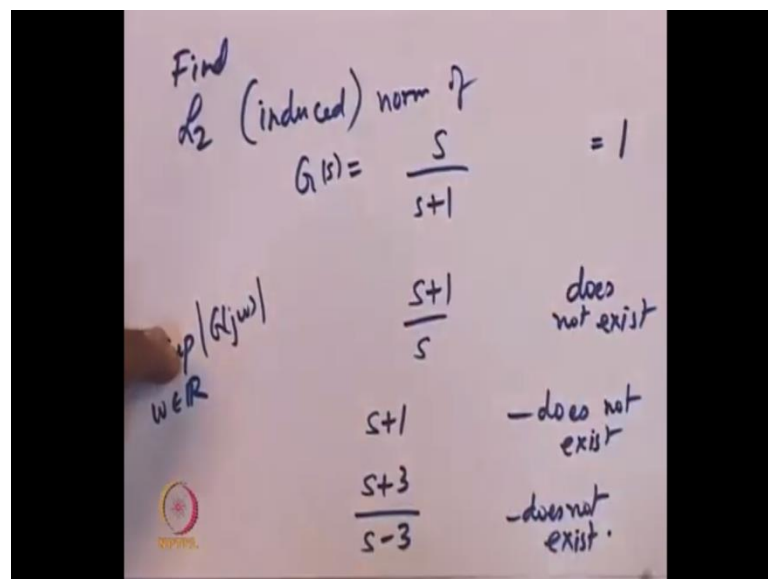 Find
L₂ (induced) norm of
G(s) = s/(s+1) = 1
(s+1)/s does not exist
|G(jω)|
ω∈ℝ
s+1 - does not exist
(s+3)/(s-3) - does not exist.
NPTEL